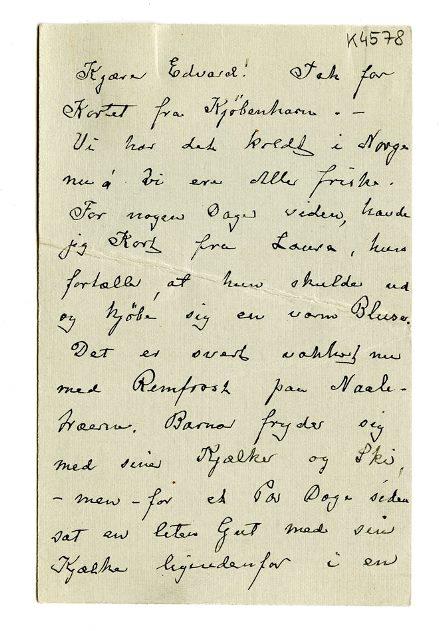 K4578
Kjære Edvard! Tak for
Kortet fra Kjøbenhavn. –
Vi har det koldt i Norge
nu á Vi ere Alle friske.
For nogen Dage siden, havde
jeg Kort fra Laura, hun
fortæller, at hun skulde ud
og kjøbe sig en varm Bluse.
Det er svært vakkert nu
med Rimfrost paa Naale-
træerne. Barna fryder sig
med sine Kjælker og Ski,
– men – for et Par Dage siden
sat en liten Gut med sin
Kjælke ligeudenfor i en